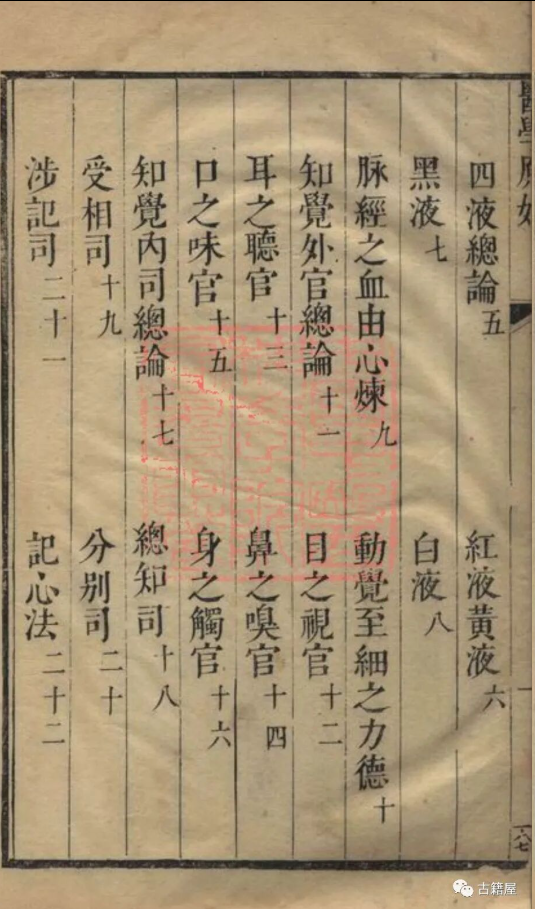 醫學原始
四液總論 五 紅液黃液 六
黑液 七 白液 八
脉經之血由心煉 九 動覺至細之力德 十
知覺外官總論 十一 目之視官 十二
耳之聽官 十三 鼻之嗅官 十四
口之味官 十五 身之觸官 十六
知覺內司總論 十七 總知司 十八
受相司 十九 分別司 二十
涉記司 二十一 記心法 二十二
古籍屋